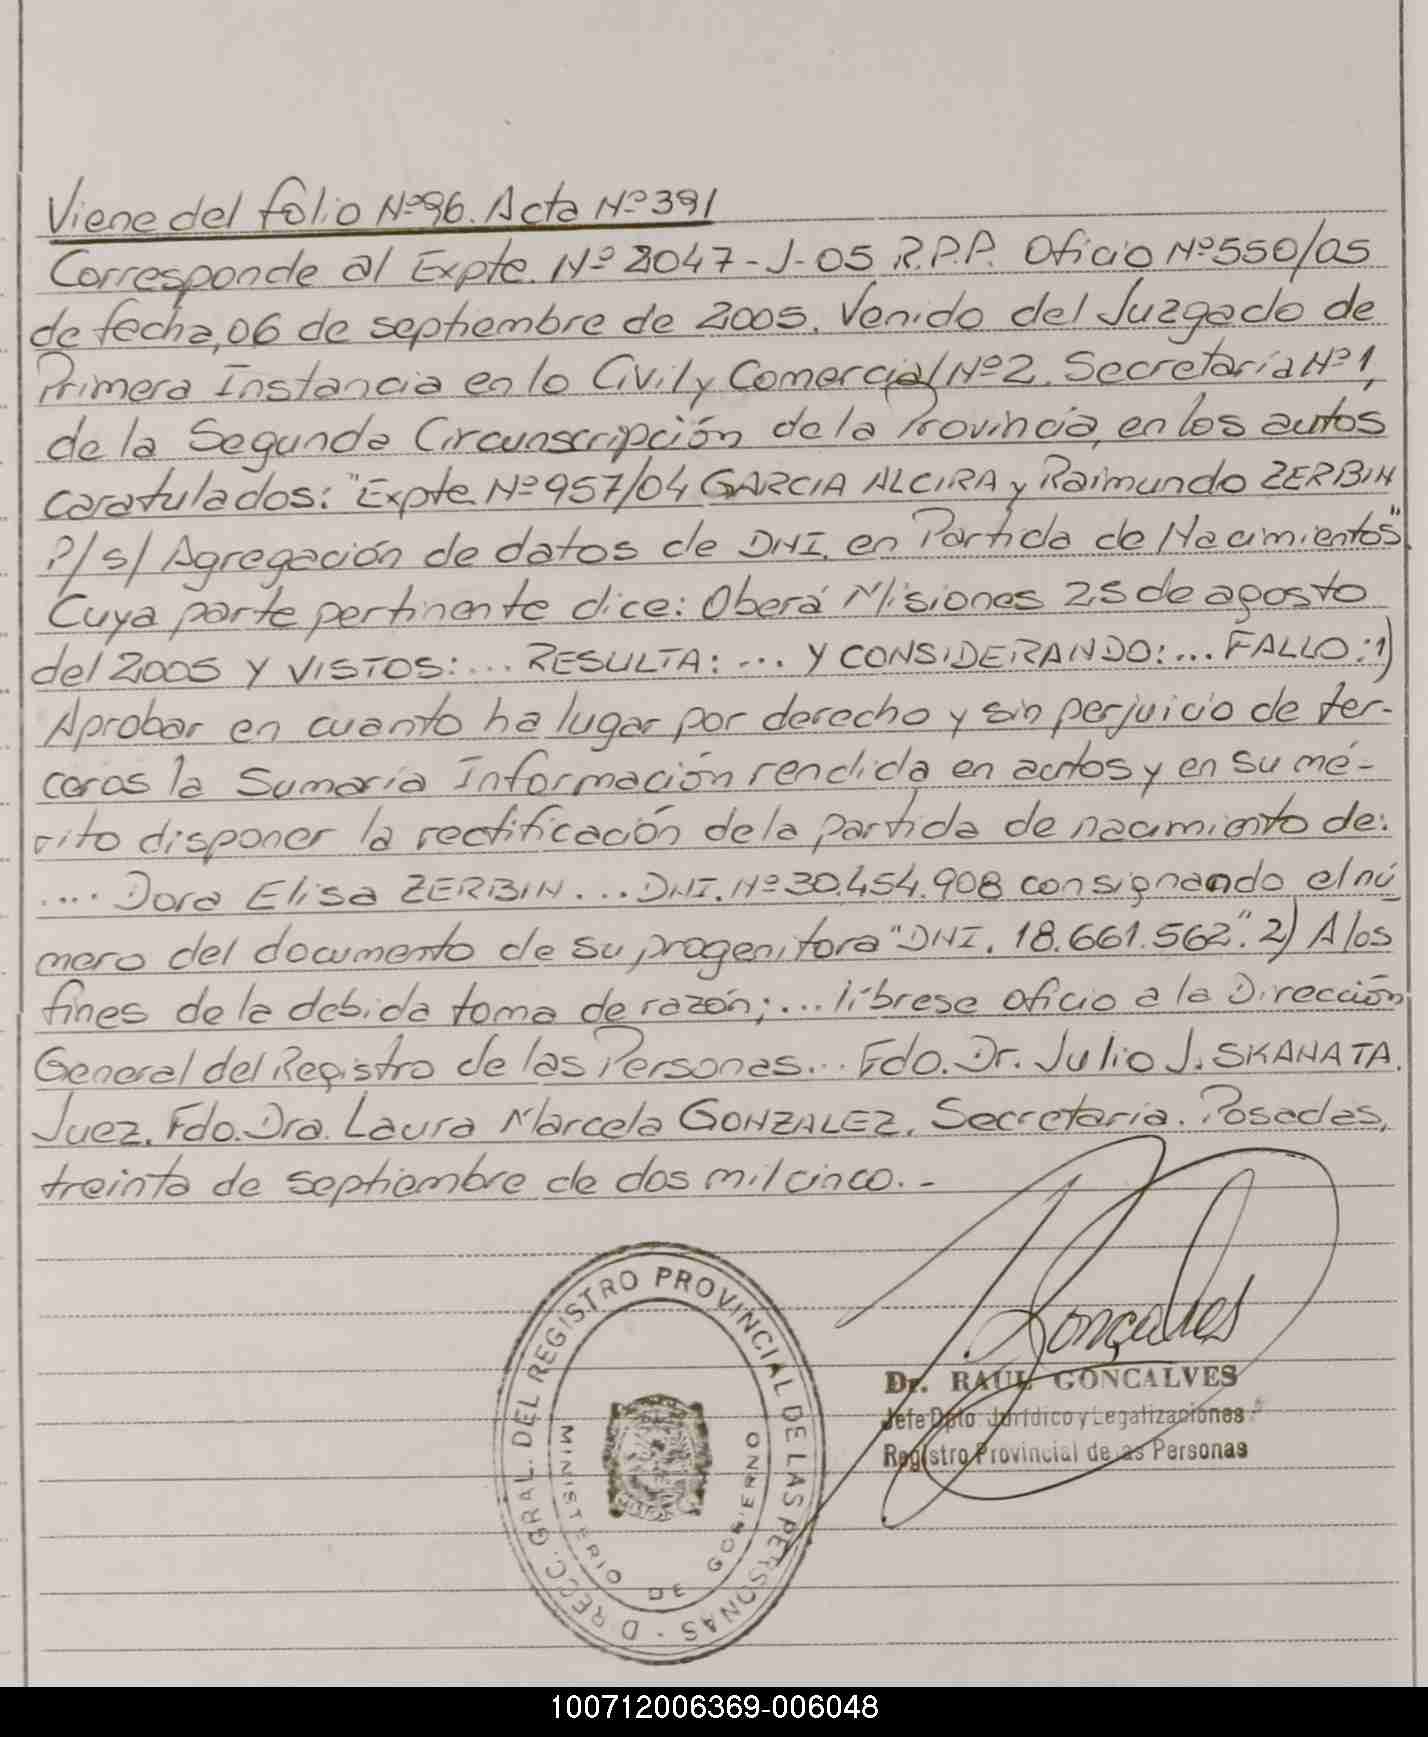 Viene del folio Nº96. Acta Nº391
Corresponde al Expte. Nº 2047-J-05 R.P.P. Oficio Nº550/05
de fecha, 06 de septiembre de 2005. Venido del Juzgado de
Primera Instancia en lo Civil y Comercial Nº2. Secretaría Nº1,
de la Segunda Circunscripción de la Provincia, en los autos
caratulados: "Expte Nº957/04 GARCIA ALCIRA y Raimundo ZERBIN
P/s/ Agregación de datos de DNI. en Partida de Nacimientos".
Cuya parte pertinente dice: Oberá Misiones 25 de agosto
del 2005 Y VISTOS: ... RESULTA: ... Y CONSIDERANDO: ... FALLO: 1)
Aprobar en cuanto ha lugar por derecho y sin perjuicio de ter-
ceros la Sumaria Información rendida en autos y en su mé-
rito disponer la rectificación de la partida de nacimiento de:
.... Dora Elisa ZERBIN ... DNI. Nº30.454.908 consignando el nú
mero del documento de su progenitora "DNI. 18.661.562". 2) A los
fines de la debida toma de razón; ... líbrese oficio a la Dirección
General del Registro de las Personas... Fdo. Dr. Julio J. SKANATA.
Juez. Fdo. Dra. Laura Marcela GONZALEZ. Secretaria. Posadas,
treinta de septiembre de dos mil cinco.-
DIRECC. GRAL. DEL REGISTRO PROVINCIAL DE LAS PERSONAS -
MINISTERIO DE GOBIERNO
Gonçalves
Dr. RAUL GONCALVES
Jefe Dpto Jurídico y Legalizaciones
Registro Provincial de las Personas
100712006369-006048